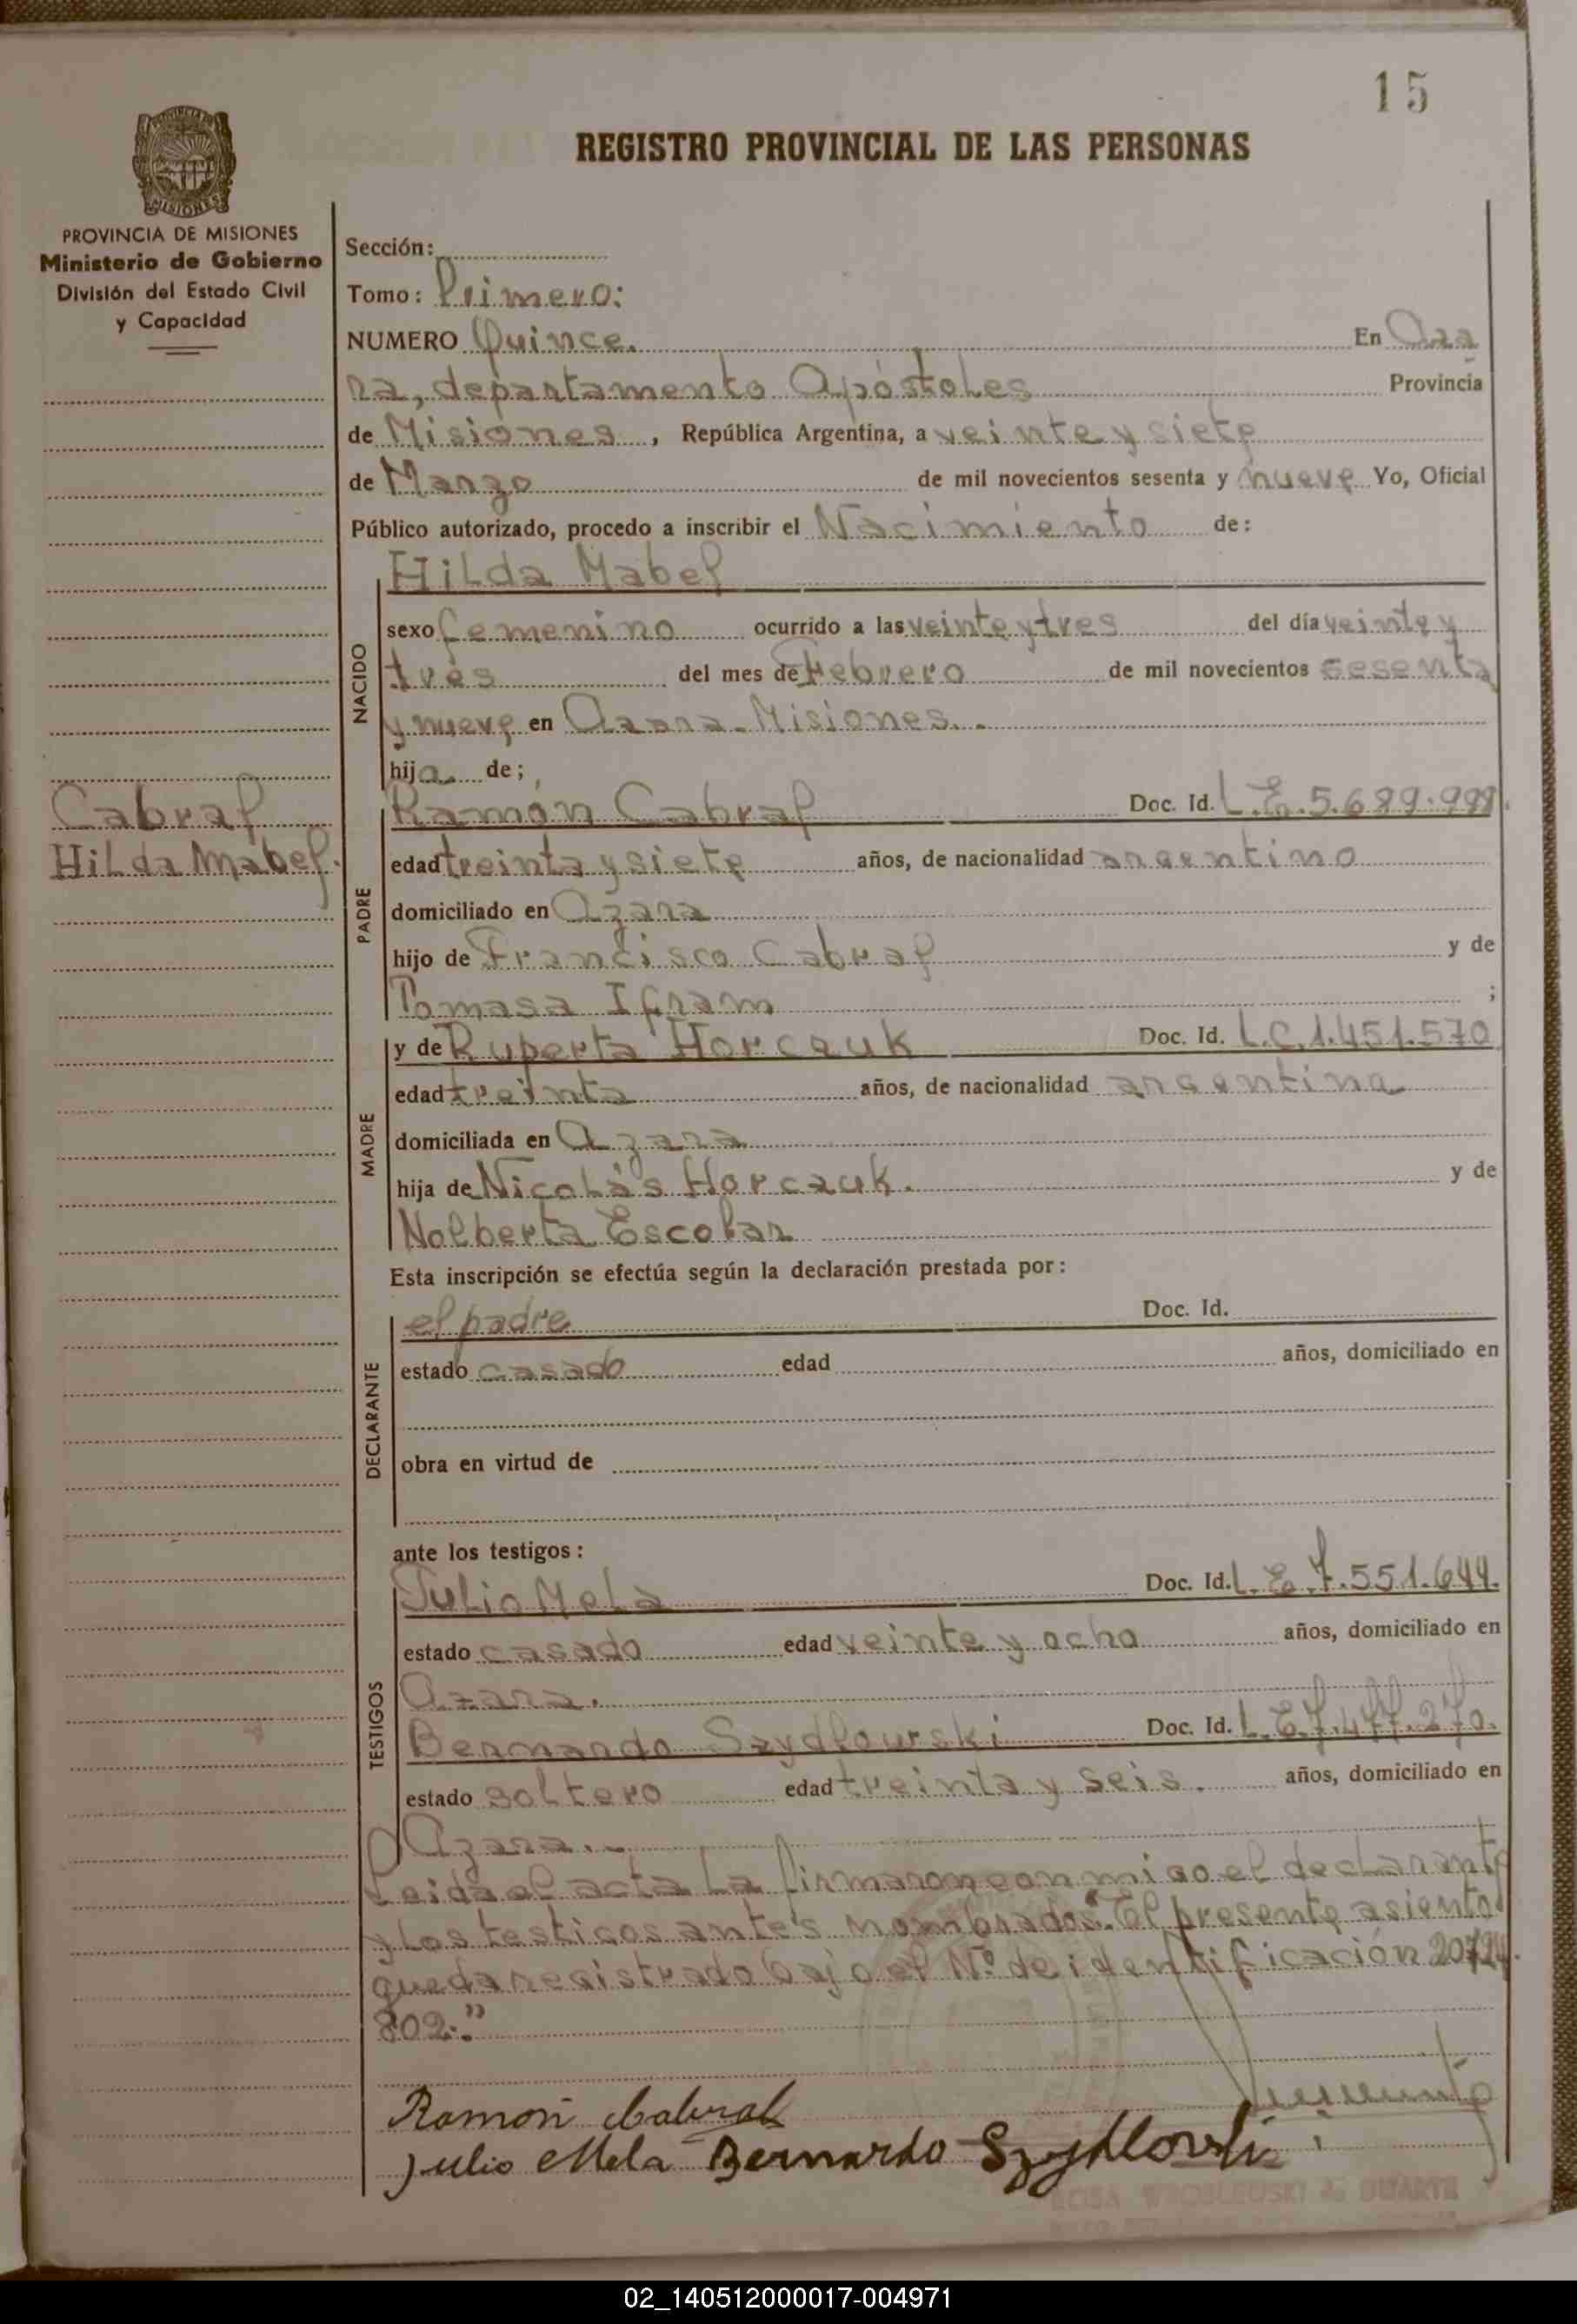 15
REGISTRO PROVINCIAL DE LAS PERSONAS
PROVINCIA DE MISIONES
MISIONES
PROVINCIA DE MISIONES
Ministerio de Gobierno
División del Estado Civil
y Capacidad
Sección:
Tomo: Primero:
NUMERO Quince. En Aza
ra, departamento Apóstoles Provincia
de Misiones, República Argentina, a veinte y siete
de Marzo de mil novecientos sesenta y nueve Yo, Oficial
Público autorizado, procedo a inscribir el Nacimiento de:
NACIDO
Hilda Mabel
sexo femenino ocurrido a las veinte y tres del día veinte y
tres del mes de Febrero de mil novecientos sesenta
y nueve en Azara-Misiones.
hija de;
Cabral
Hilda Mabel.
PADRE
Ramón Cabral Doc. Id. L.E. 5.689.998.
edad treinta y siete años, de nacionalidad argentino
domiciliado en Azara
hijo de Francisco Cabral y de
Tomasa Ifram ;
MADRE
y de Ruperta Horcauk Doc. Id. L.C. 1.451.570
edad treinta años, de nacionalidad argentina
domiciliada en Azara
hija de Nicolás Horcauk. y de
Nolberta Escobar
Esta inscripción se efectúa según la declaración prestada por:
DECLARANTE
el padre Doc. Id.
estado casado edad años, domiciliado en
obra en virtud de
ante los testigos:
TESTIGOS
Julio Mela Doc. Id. L.E. 7.551.644.
estado casado edad veinte y ocho años, domiciliado en
Azara.
Bernardo Szydlowski Doc. Id. L.E. 7.477.270.
estado soltero edad treinta y seis. años, domiciliado en
Azara.
Leida el acta la firmaron conmigo el declarante
y los testigos antes nombrados. "El presente asiento
queda registrado bajo el Nº de identificación 20.724.
802."
Ramón Cabral
Julio Mela Bernardo Szydlowski
ROSA WROBLEUSKI de DUARTE
02_140512000017-004971